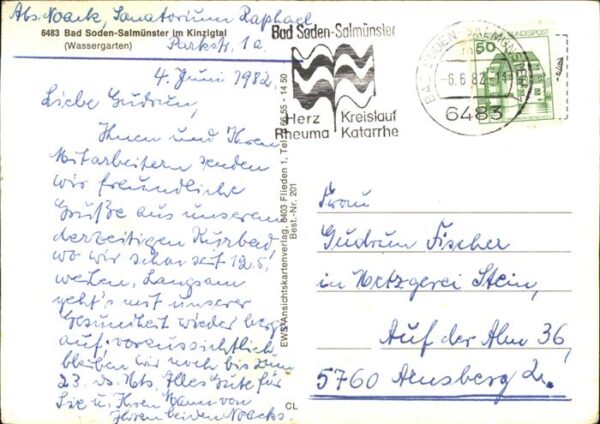 Abs. Noack, Sanatorium Raphael
Parkstr. 1a
6483 Bad Soden-Salmünster im Kinzigtal
(Wassergarten)
4. Juni 1982.
Liebe Gudrun,
Ihnen und Ihren
Mitarbeitern senden
wir freundliche
Grüße aus unserem
derzeitigen Kurbad,
wo wir schon seit 12.5.
weilen. Langsam
geht's mit unserer
Gesundheit wieder berg-
auf. Voraussichtlich
bleiben wir noch bis zum
23. ds. Mts. Alles Gute für
Sie u. Ihren Mann von
Ihren beiden Noacks.
EWS Ansichtskartenverlag, 6403 Flieden 1, Tel. 66 55 - 14 50
Best.-Nr. 201
CL
Bad Soden-Salmünster
Herz Kreislauf
Rheuma Katarrhe
BAD SODEN-SALMÜNSTER
-6.6.82-11
6483
50
Frau
Gudrun Fischer
in Metzgerei Stein,
Auf der Alm 36,
5760 Arnsberg 2.